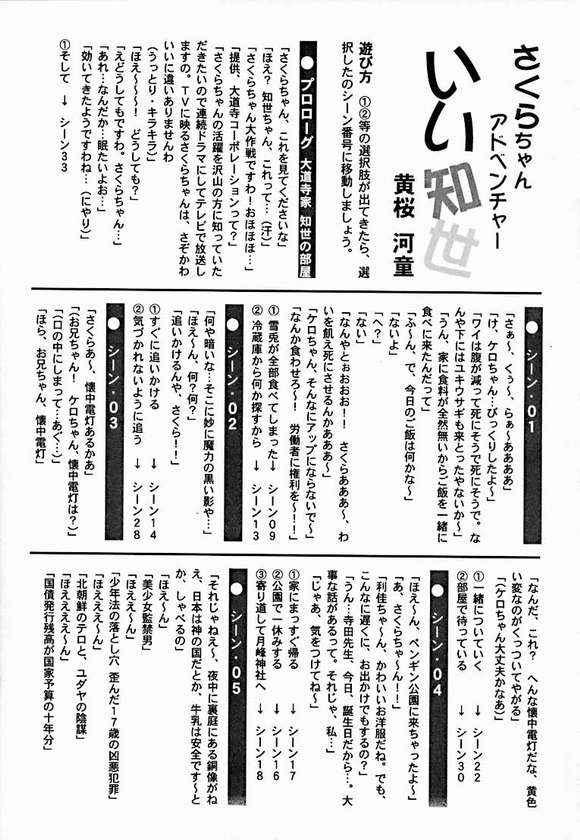 さくらちゃん
アドベンチャー
いい知世
黄桜 河童
遊び方 ①②等の選択肢が出てきたら、選
択したのシーン番号に移動しましょう。
●プロローグ 大道寺家 知世の部屋
「さくらちゃん、これを見てくださいな」
「ほえ? 知世ちゃん、これって…(汗)」
「さくらちゃん大作戦ですわ!おほほほ…」
「提供、大道寺コーポレーションって?」
「さくらちゃんの活躍を沢山の方に知っていた
だきたいので連続ドラマにしてテレビで放送し
ますの。TVに映るさくらちゃんは、さぞかわ
いいに違いありませんわ
(うっとり・キラキラ)」
「ほえ~~~! どうしても?」
「えどうしてもですわ。さくらちゃん…」
「あれ…なんだか…眠たいよお…」
「効いてきたようですわね…(にやり)」
①そして → シーン33
●シーン・01
「さぁ~、くぅ~、らぁ~ああああ」
「け、ケロちゃん…びっくりしたよ~」
「ワイは腹が減って死にそうで死にそうで。な
んや下にはユキウサギも来とったやないか~」
「うん、家に食料が全然無いからご飯を一緒に
食べに来たんだって」
「ふ~ん、で、今日のご飯は何かな~」
「ないよ」
「へ?」
「ない」
「なんやとぉおおお! さくらあああ~、わ
いを飢え死にさせるんかあああ」
「ケロちゃん、そんなにアップにならないで~」
「なんか食わせろ~! 労働者に権利を~!!」
① 雪兎が全部食べてしまった→ シーン09
② 冷蔵庫から何か探すから → シーン13
●シーン・02
「何や暗いな…そこに妙に魔力の黒い影や…」
「ほえ~ん、何?何?」
「追いかけるんや、さくら!!」
①すぐに追いかける → シーン14
②気づかれないように追う → シーン28
●シーン・03
「さくらあ~、懐中電灯あるかあ」
「(お兄ちゃん! ケロちゃん、懐中電灯は?)」
「(口の中にしまって…あぐ…)」
「ほら、お兄ちゃん、懐中電灯」
「なんだ、これ? へんな懐中電灯だな、黄色
い変なのがくっついてやがる」
「(ケロちゃん大丈夫かなあ)」
①一緒についていく → シーン22
②部屋で待っている → シーン30
●シーン・04
「ほえ~ん、ペンギン公園に来ちゃったよ~」
「あ、さくらちゃ~ん!!」
「利佳ちゃ~ん、かわいいお洋服だね。でも、
こんなに遅くに、お出かけでもするの?」
「うん…寺田先生、今日、誕生日だから…。大
事な話があるって。それじゃ、私…」
「じゃあ、気をつけてね~」
①家にまっすぐ帰る → シーン17
②公園で一休みする → シーン16
③寄り道して月峰神社へ → シーン18
●シーン・05
「それじゃねえ~、夜中に裏庭にある銅像がね
え、日本は神の国だとか、牛乳は安全です~と
か、しゃべるの」
「ほえ~ん」
「美少女監禁男」
「ほええ~ん」
「少年法の落とし穴 歪んだ17歳の凶悪犯罪」
「ほえええ~ん」
「北朝鮮のテロと、ユダヤの陰謀」
「ほええええ~ん」
「国債発行残高が国家予算の十年分」